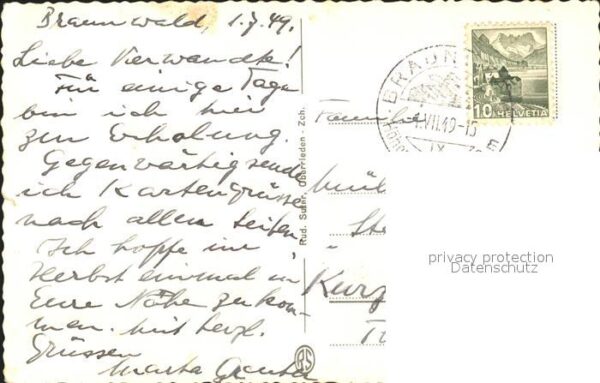 Braunwald, 1.7.49.
Liebe Verwandte!
Für einige Tage
bin ich hier
zur Erholung.
Gegenwärtig sende
ich Kartengrüsse
nach allen Seiten,
Ich hoffe im
Herbst einmal in
Eure Nähe zu kom-
men. Mit herzl.
Grüssen
Marta
Rud. Suhr, Oberrieden - Zch.
RS
BRAUN
1.VII.49-15
10 HELVETIA
Familie
Mül
Kurz
privacy protection
Datenschutz